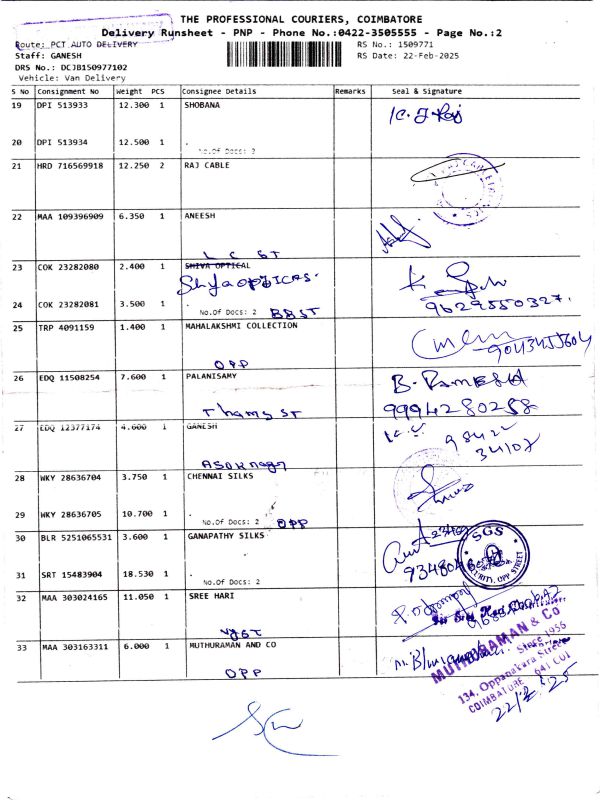 THE PROFESSIONAL COURIERS, COIMBATORE
Delivery Runsheet - PNP - Phone No.:0422-3505555 - Page No.:2
Route: PCT AUTO DELIVERY RS No.: 1509771
Staff: GANESH RS Date: 22-Feb-2025
DRS No.: DCJB150977102
Vehicle: Van Delivery
S No Consignment No Weight PCS Consignee Details Remarks Seal & Signature
19 DPI 513933 12.300 1 SHOBANA
20 DPI 513934 12.500 1 .
No.Of Docs: 2
21 HRD 716569918 12.250 2 RAJ CABLE
22 MAA 109396909 6.350 1 ANEESH
L C ST
23 COK 23282080 2.400 1 SHIVA OPTICAL
24 COK 23282081 3.500 1 .
No.Of Docs: 2 9629550327.
25 TRP 4091159 1.400 1 MAHALAKSHMI COLLECTION
OPP
26 EDQ 11508254 7.600 1 PALANISAMY B. RAMESH
9994280258
27 EDQ 12377174 4.600 1 GANESH
28 WKY 28636704 3.750 1 CHENNAI SILKS
29 WKY 28636705 10.700 1 .
No.Of Docs: 2 OPP
30 BLR 5251065531 3.600 1 GANAPATHY SILKS
SGS
31 SRT 15483904 18.530 1 .
No.Of Docs: 2
32 MAA 303024165 11.050 1 SREE HARI
33 MAA 303163311 6.000 1 MUTHURAMAN AND CO
OPP
MUTHURAMAN & CO
Since 1956
134, Oppanakara Street
COIMBATORE - 641 001